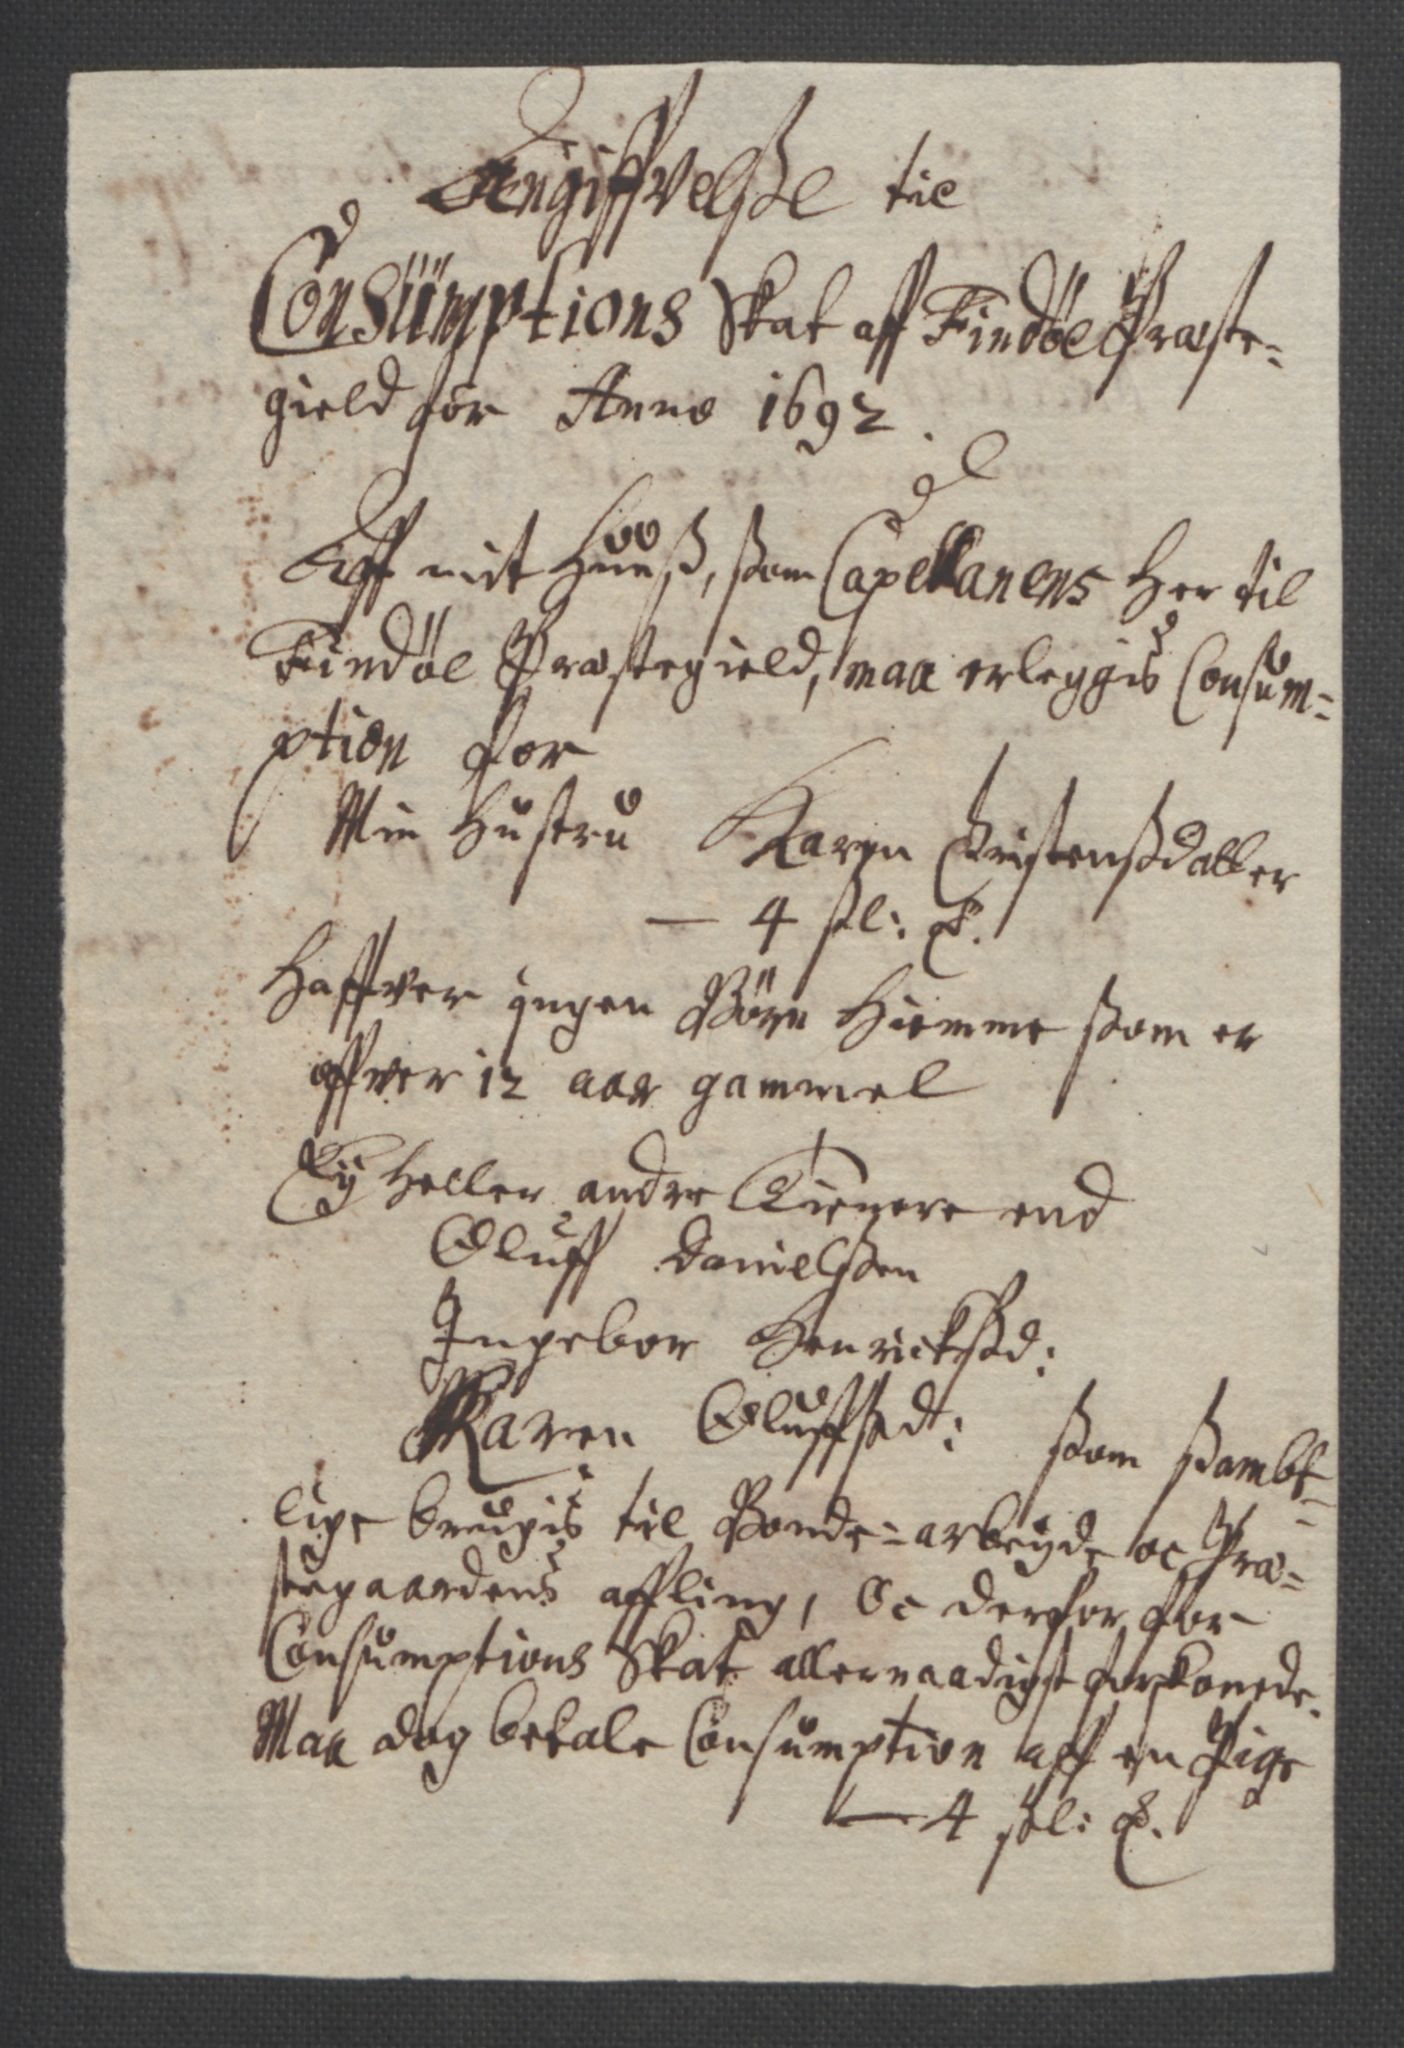 Angiffvelsse til
Consumptions Skat aff Findöe Præste-
gield for Anno 1692.
Aff mit Huuss, som Capellanens her til
Findöe Præstegield, maa erleggis Consum-
ption for
Min Hustru Karen Christenssdatter
— 4 ssl: d.
Haffver ingen Börn hiemme som er
offver 12 aar gammel
Ey heller andre Tienere end
Oluff Danielssen
Ingebor Henrickssd:
Karen Oluffssd: som sambt-
lige brugis til Bonde-arbeyde oc Præ-
stegaardens affling, Oc derfor for
Consumptions Skat allernaadigst forskonede.
Maa dog betale Consumption aff en Pige
— 4 ssl: d.